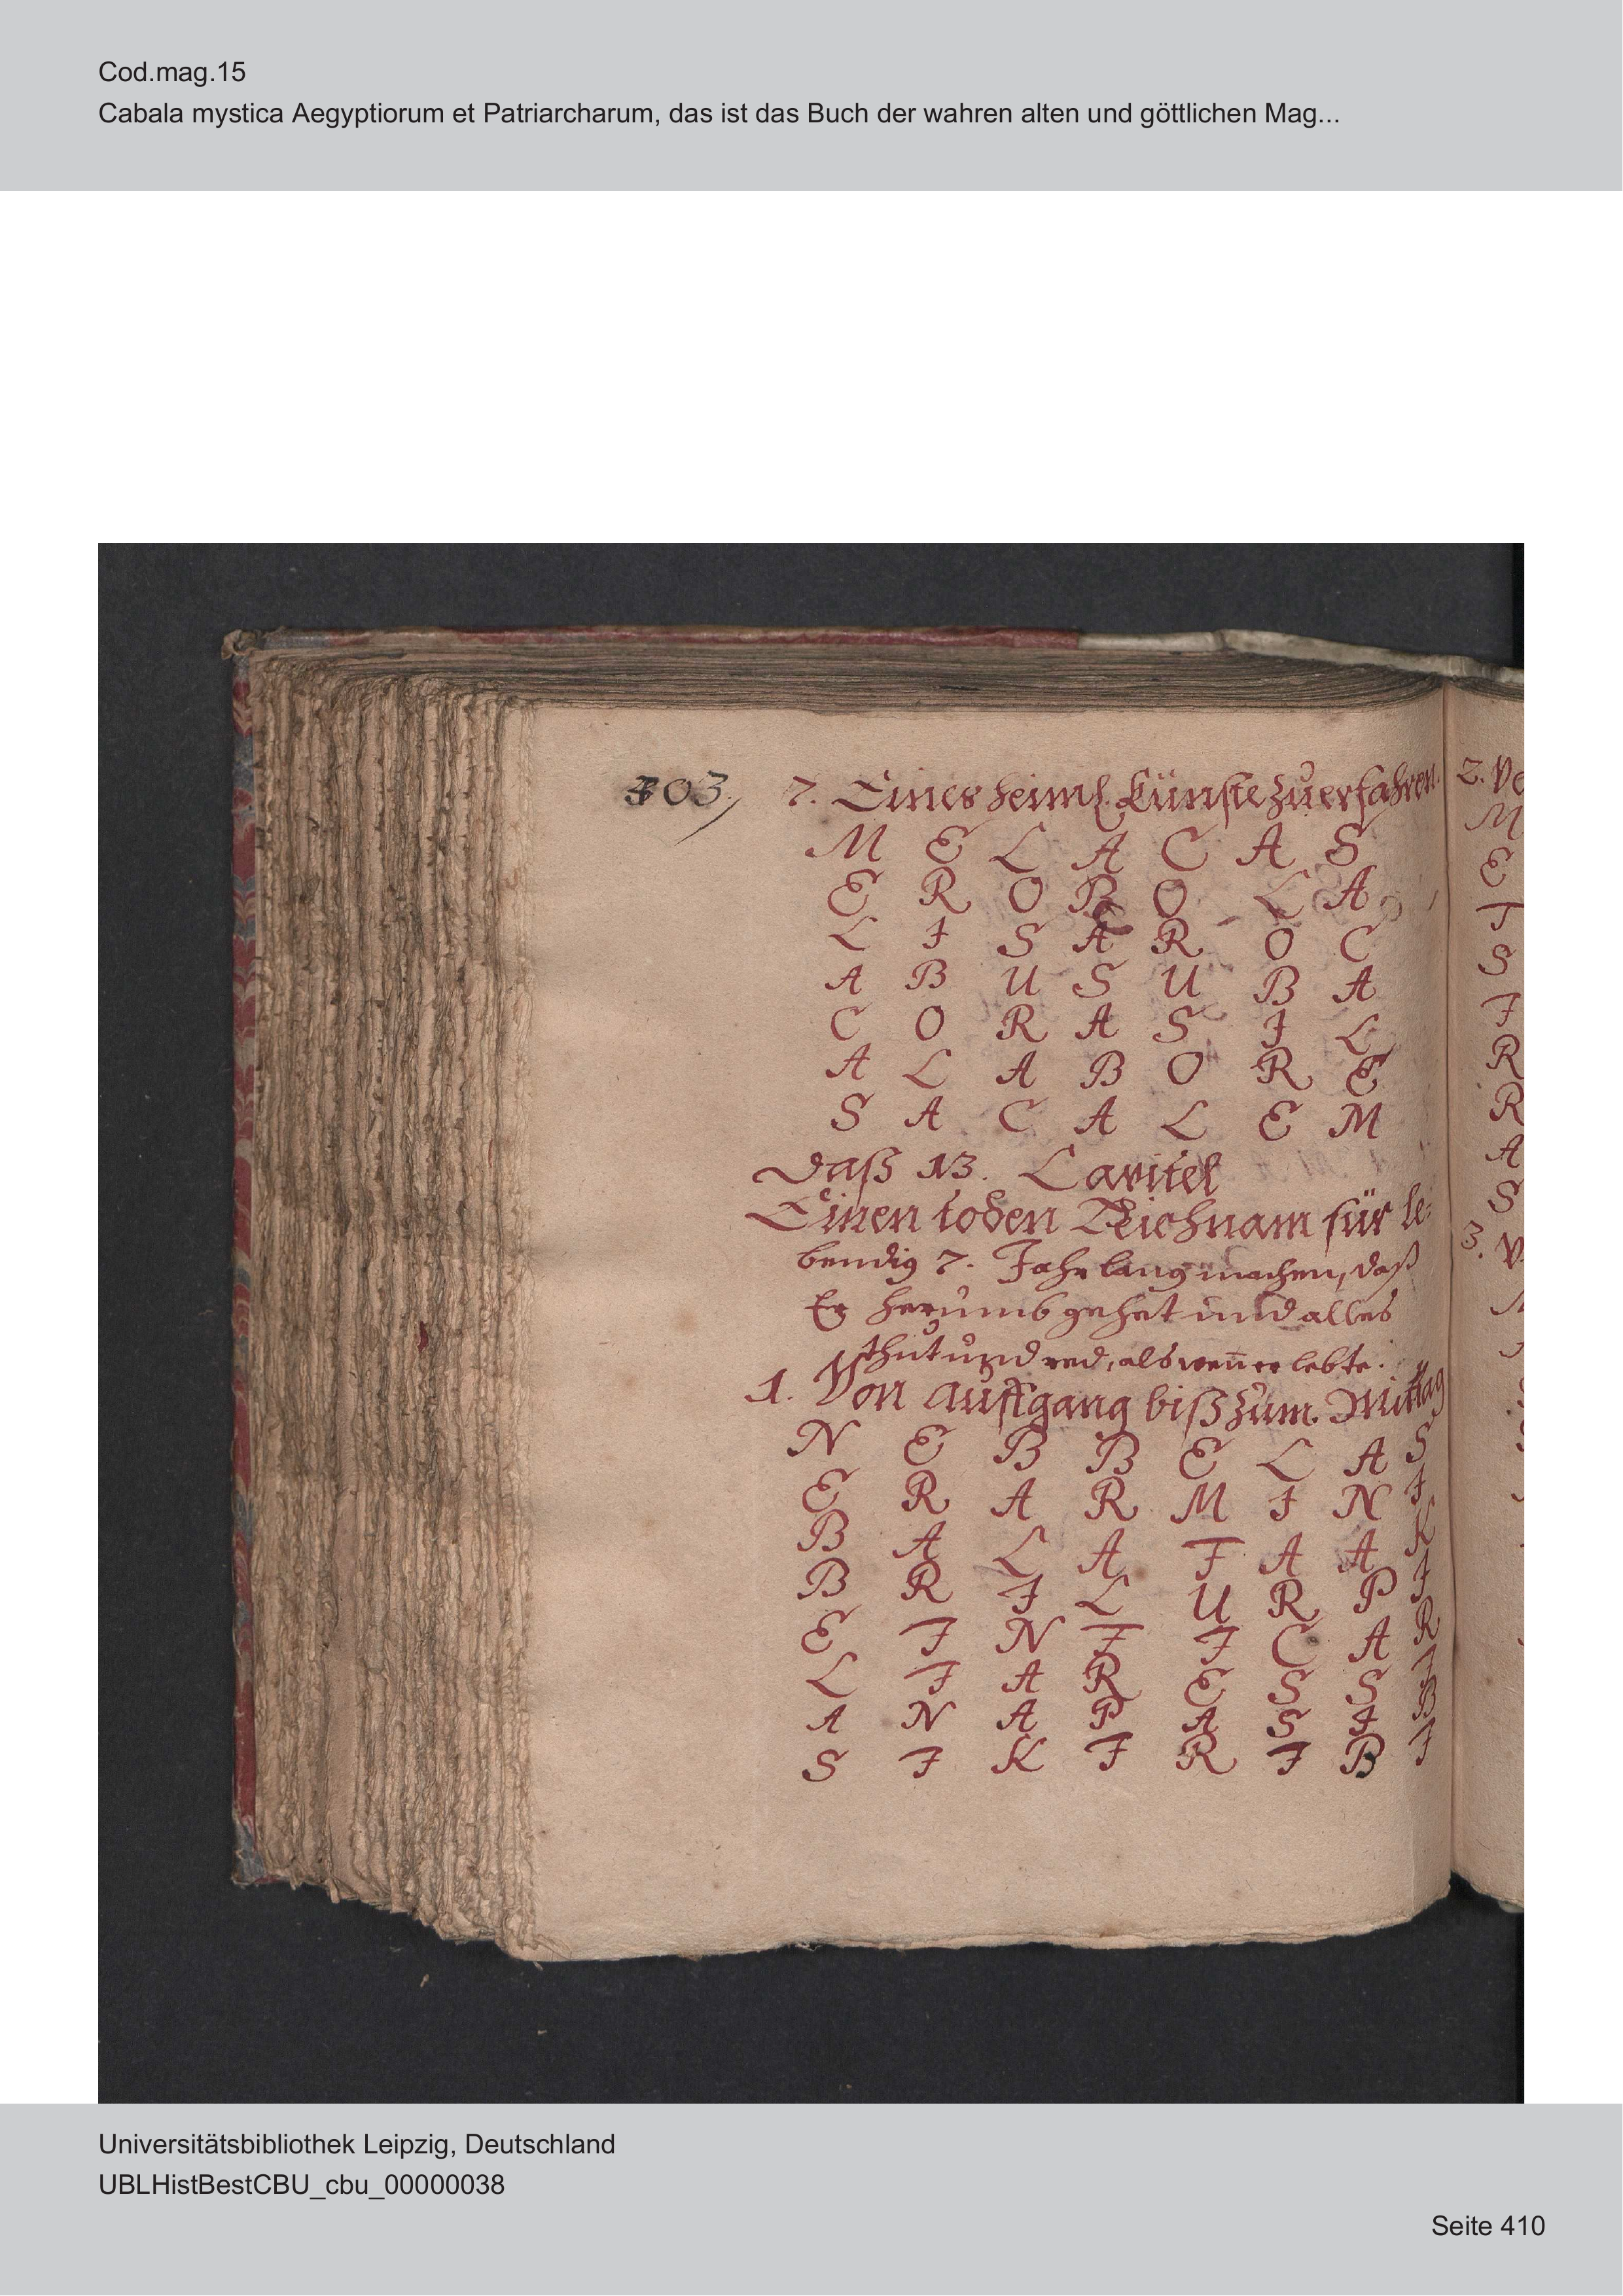 Cod.mag.15
Cabala mystica Aegyptiorum et Patriarcharum, das ist das Buch der wahren alten und göttlichen Mag...
303. 7. Eines heiml. Künste zu erfahren.
M E L A C A S
E R O B O L A
L I S A R O C
A B U S U B A
C O R A S I L
A L A B O R E
S A C A L E M
Daß 13. Capitel
Einen toden Leichnam für le=
bendig 7. Jahr lang machen, daß
Er herumb gehet und alles
thut und red, als wen̄ er lebte.
1. Von auffgang biß zum Mittag
N E B B E L A S
E R A R M I N I
B A L A T A A K
B R I L U R P I
E T N T I C A R
L I A R E S S I
A N A P A S I B
S I K I R I B I
2. Ve
M
E
T
S
I
R
R
A
S
3. V
Universitätsbibliothek Leipzig, Deutschland
UBLHistBestCBU_cbu_00000038
Seite 410